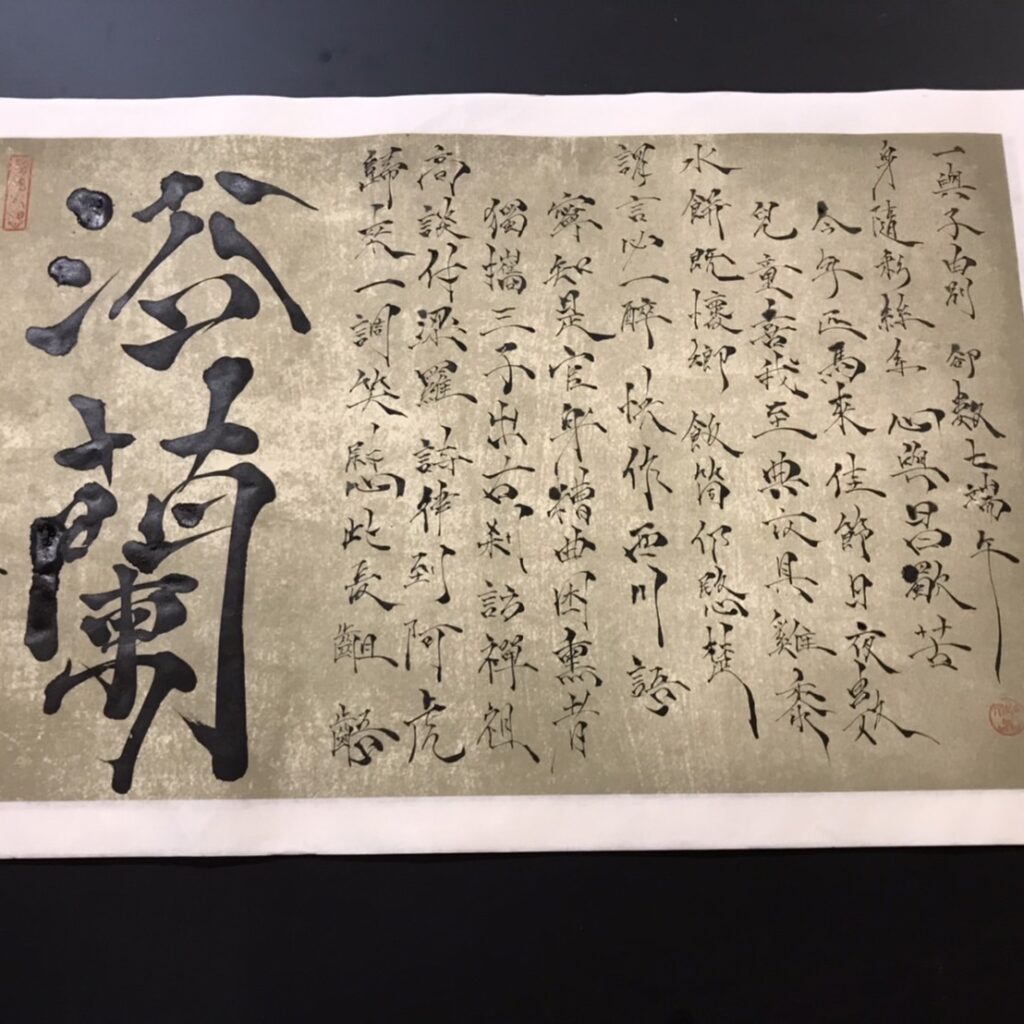 一與子由別 卻數七端午
身隨彩絲系 心與昌歜苦
今年匹馬來 佳節日夜數
兒童喜我至 典衣具雞黍
水餅既懷鄉 飯筒仍愍楚
謂言必一醉 快作西川語
寧知是官身 糟曲困熏
獨攜三子出 古刹訪禪祖
高談付梁羅 詩律到阿虎
歸來一調笑 慰此長齟齬
浴蘭